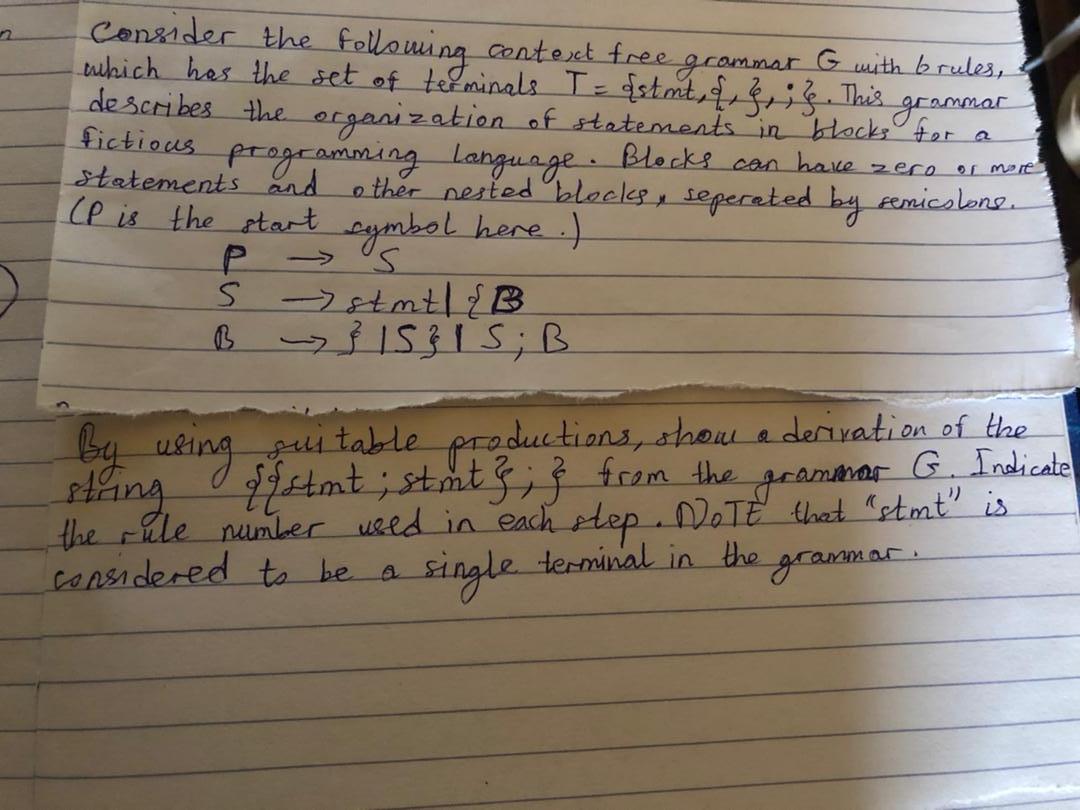 Consider the following context free grammar G with 6 rules,
which has the set of terminals T = {stmt, {, }, ; }. This grammar
describes the organization of statements in blocks for a
fictious programming language. Blocks can have zero or more
statements and other nested blocks, seperated by semicolons.
(P is the start symbol here.)
P → S
S → stmt | { B
B → } | S } | S ; B
By using suitable productions, show a derivation of the
string {{stmt ; stmt } ; } from the grammar G. Indicate
the rule number used in each step. NOTE that "stmt" is
considered to be a single terminal in the grammar.